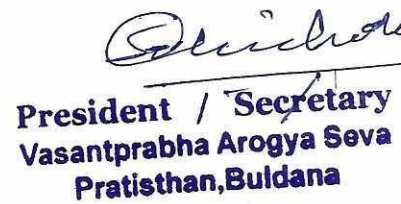 President / Secretary
Vasantprabha Arogya Seva
Pratisthan,Buldana